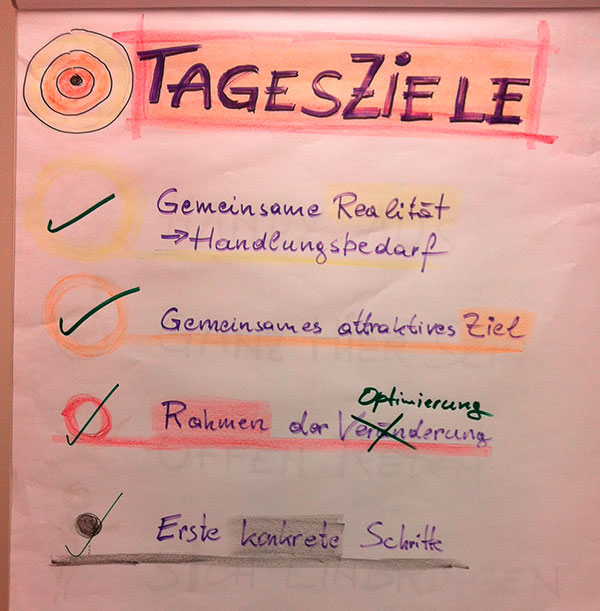 TAGESZIELE
Gemeinsame Realität
→Handlungsbedarf
Gemeinsames attraktives Ziel
Optimierung
Rahmen der Veränderung
Erste konkrete Schritte